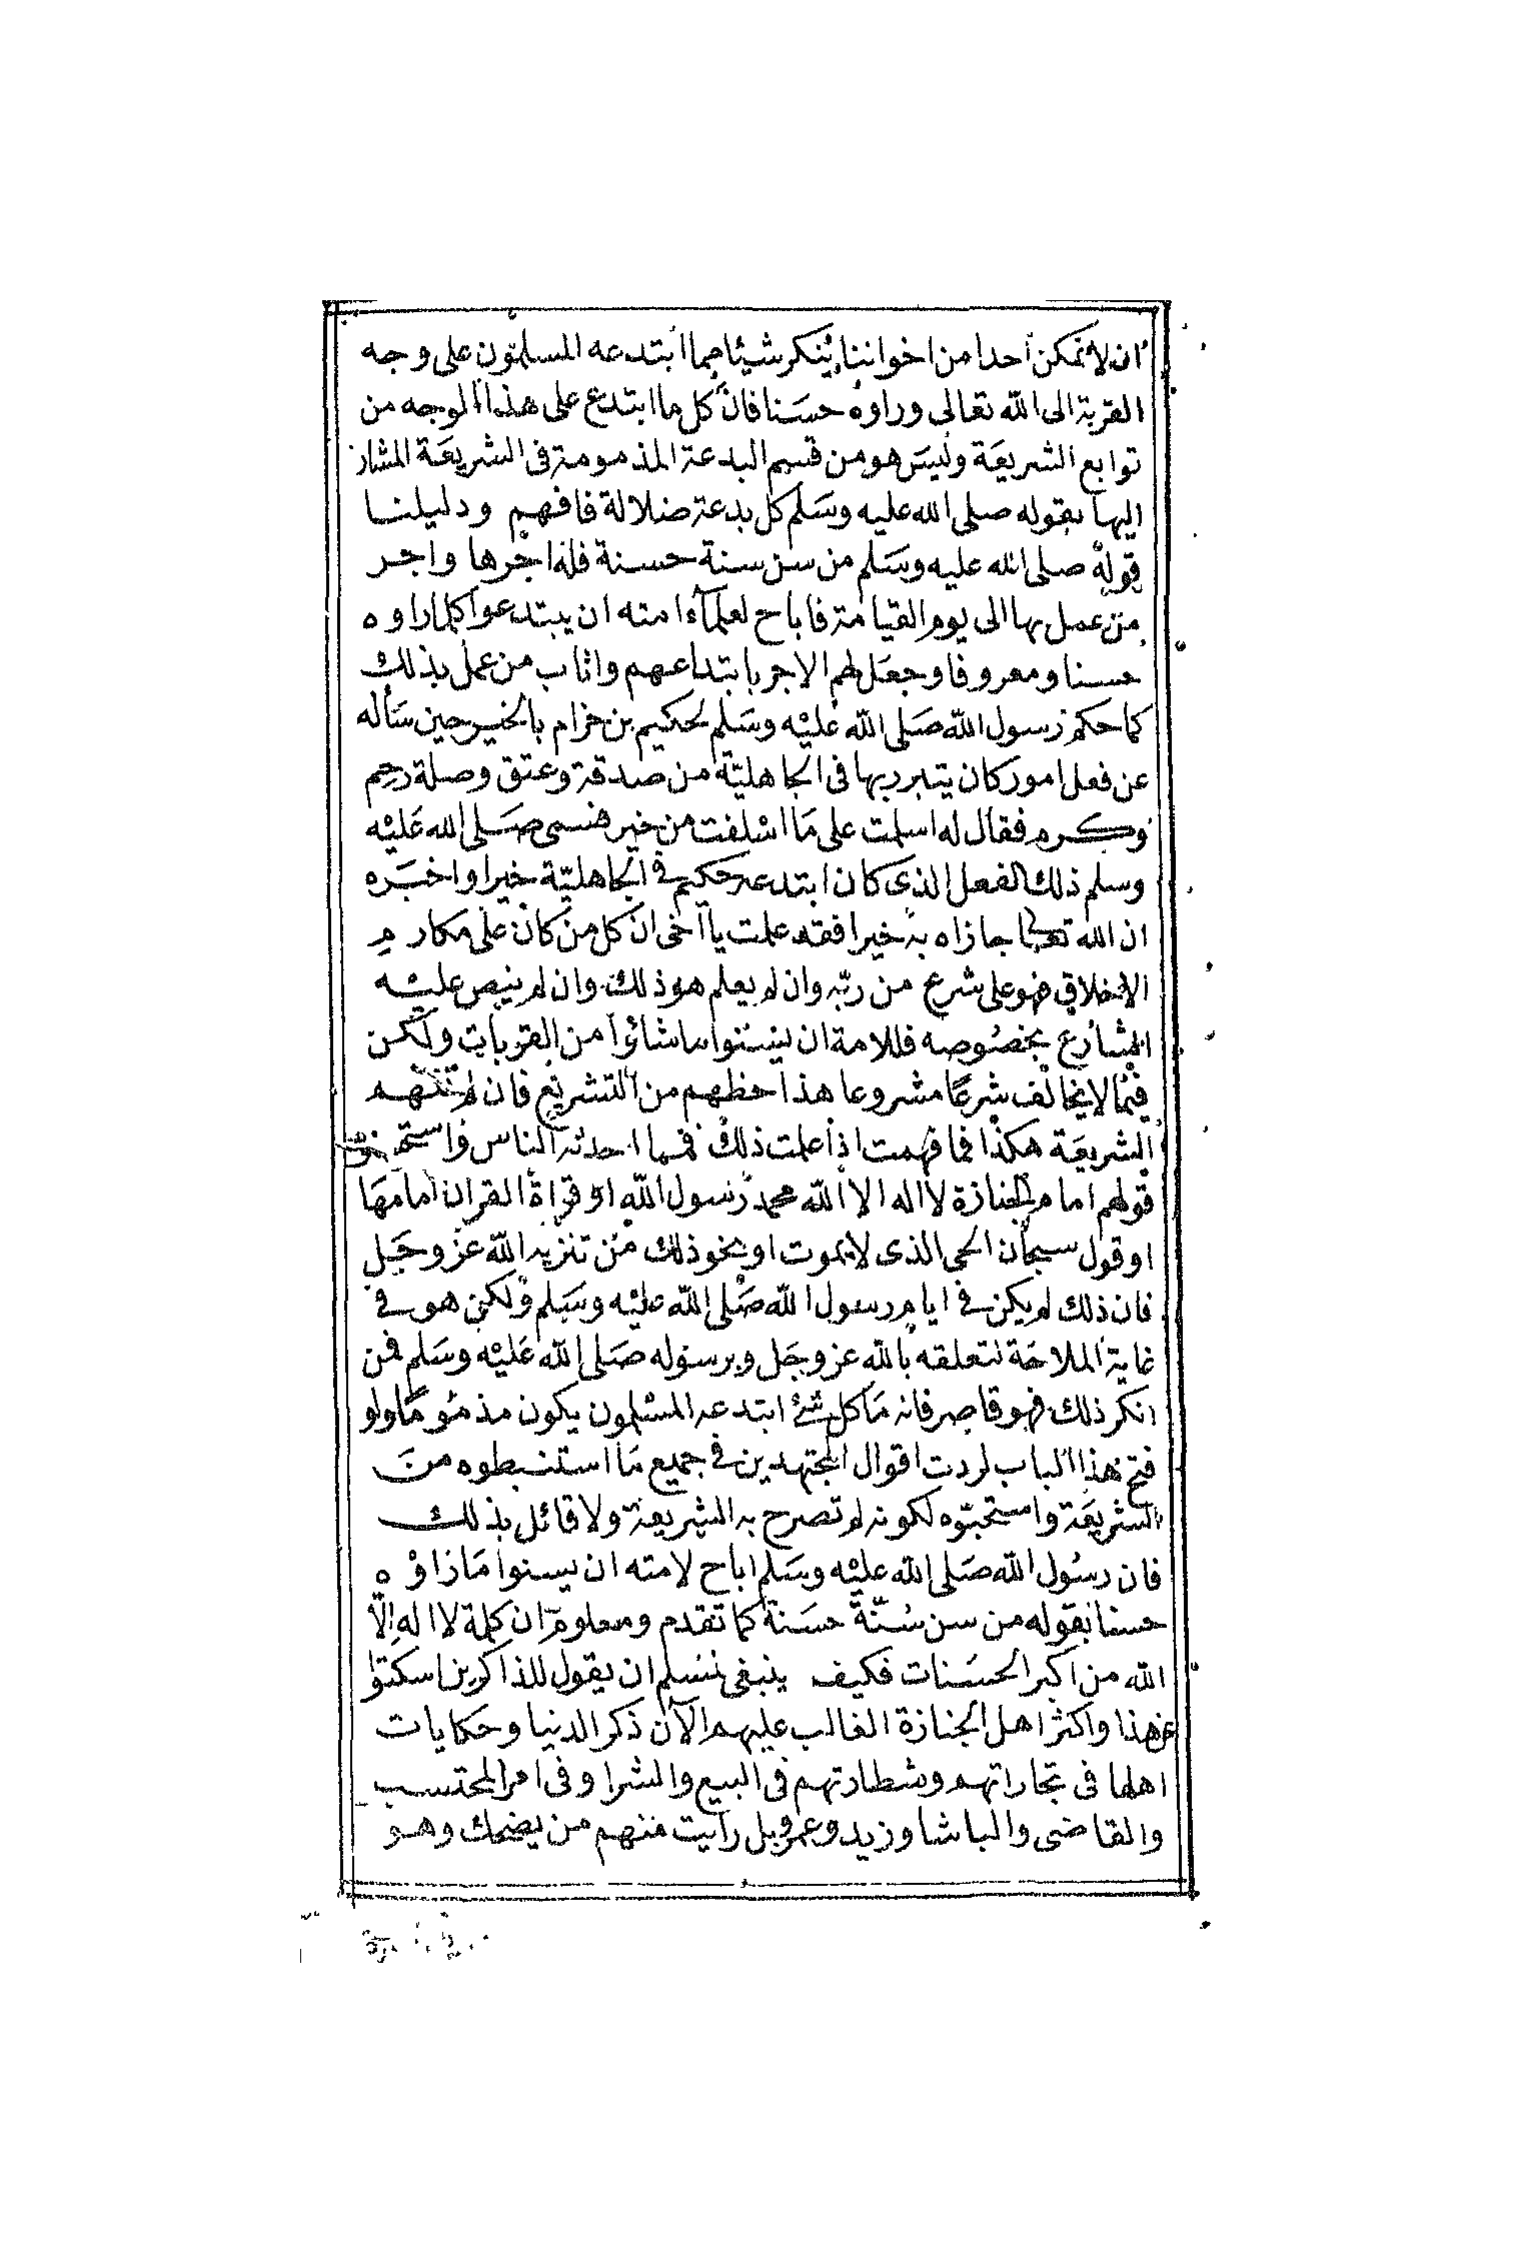 ان لا نمكن أحدا من اخواننا ينكر شيئا مما ابتدعه المسلمون على وجه
القربة الى الله تعالى وراوه حسَنا فان كل ما ابتدع على هذا الوجه من
توابع الشريعَة وليسَ هو من قسم البدعة المذمومة فى الشريعَة المشار
اليها بقوله صلى الله عليه وسَلم كل بدعة ضلالة فافهم ودليلنا
قوله صلى الله عليه وسَلم من سن سنة حسنة فله اجرها واجر
من عمل بها الى يوم القيامة فاباح لعلمآء امته ان يبتدعوا كلما راوه
حسنا ومعروفا وجعَل لهم الاجر بابتداعهم واثاب من عمل بذلك
كما حكم رسول الله صَلى الله عليْه وسَلم لحكيم بن حزام بالخير حين سَأله
عن فعل امور كان يتبرر بها فى الجاهليّة من صدقة وعتق وصلة رحم
وكرم فقال له اسلمت على مَا اسْلفت من خير فسمى صَلى الله عَليْه
وسلم ذلك الفعل الذى كان ابتدعه حكيم فى الجاهليّة خيرا واخبَره
ان الله تعالى جازاه به خيرا فقد علمت يا اخى ان كل من كان على مكارم
الاخلاق فهو على شرع من ربّه وان لم يعلم هو ذلك وان لم ينص عليْه
الشارع بخصُوصه فللامة ان يسنوا ما شاؤا من القربات ولكن
فيما لا يخالف شرعًا مشروعا هذا حظهم من التشريع فان لم تنههم
الشريعَة هكذا فما فهمت اذا علمت ذلك فمما احدثه الناس واستحسنوه
قولهم امام الجنازة لا اله الا الله محمد رسول الله او قراة القران امامهَا
او قول سبحان الحى الذى لا يموت او نحو ذلك من تنزيه الله عز وجَل
فان ذلك لم يكن فى ايام رسول الله صَلى الله عليْه وسَلم ولكن هو فى
غاية الملاحَة لتعلقه بالله عز وجَل وبرسوله صَلى الله عَليْه وسَلم فمن
انكر ذلك فهو قاصر فانه مَا كل شئ ابتدعه المسْلمون يكون مذمُومًا ولو
فتح هذا الباب لردت اقوال المجتهدين فى جميع مَا استنبطوه منَ
الشريعَة واستحبّوه لكونه لم تصرح به الشريعة ولا قائل بذلك
فان رسُول الله صَلى الله عليْه وسَلم اباح لامته ان يسنوا مَا راوْه
حسنا بقوله من سن سُنّةً حسَنة كما تقدم ومعلوم ان كلمة لا اله إلّا
الله من اكبر الحسَنات فكيف ينبغى لمسْلم ان يقول للذاكرين اسكتوا
عن هذا واكثر اهل الجنازة الغالب عليهم الآن ذكر الدنيا وحكايات
اهلها فى تجاراتهم وشطارتهم فى البيع والشرا وفى امر المحتسب
والقاضى والباشا وزيد وعمرو بل رايت منهم من يضحك وهو